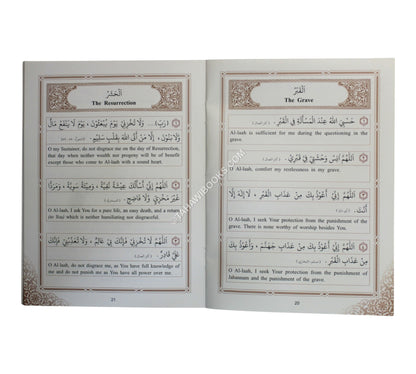 اَلْقَبْرُ
The Grave
حَسْبِيَ اللهُ عِنْدَ الْمَسْأَلَةِ فِي الْقَبْرِ .
Al-laah is sufficient for me during the questioning in the
grave.
اَللّٰهُمَّ آنِسْ وَحْشَتِيْ فِيْ قَبْرِيْ .
O Al-laah, comfort my restlessness in my grave.
اَللّٰهُمَّ إِنِّيْ أَعُوْذُ بِكَ مِنْ عَذَابِ الْقَبْرِ ، لَا إِلٰهَ إِلَّا
أَنْتَ .
O Al-laah, I seek Your protection from the punishment of
the grave. There is none worthy of worship besides You.
اَللّٰهُمَّ إِنِّيْ أَعُوْذُ بِكَ مِنْ عَذَابِ جَهَنَّمَ ، وَأَعُوْذُ بِكَ
مِنْ عَذَابِ الْقَبْرِ .
O Al-laah, I seek Your protection from the punishment of
Jahannam and the punishment of the grave.
20
اَلْحَشْرُ
The Resurrection
وَلَا تُخْزِنِيْ يَوْمَ يُبْعَثُوْنَ ، يَوْمَ لَا يَنْفَعُ مَالٌ
وَلَا بَنُوْنَ ، إِلَّا مَنْ أَتَى اللهَ بِقَلْبٍ سَلِيْمٍ .
O my Sustainer, do not disgrace me on the day of Resurrection,
that day when neither wealth nor progeny will be of benefit
except those who come to Al-laah with a sound heart.
اَللّٰهُمَّ إِنِّيْ أَسْأَلُكَ عِيْشَةً نَقِيَّةً ، وَمِيْتَةً سَوِيَّةً ، وَمَرَدًّا
غَيْرَ مَخْزِيٍّ وَلَا فَاضِحٍ .
O Al-laah, I ask You for a pure life, an easy death, and a return
(to You) which is neither humiliating nor disgraceful.
اَللّٰهُمَّ لَا تُخْزِنِيْ فَإِنَّكَ بِيْ عَالِمٌ ، وَلَا تُعَذِّبْنِيْ فَإِنَّكَ
عَلَيَّ قَادِرٌ .
O Al-laah, do not disgrace me, as You have full knowledge of
me and do not punish me as You have all power over me.
21